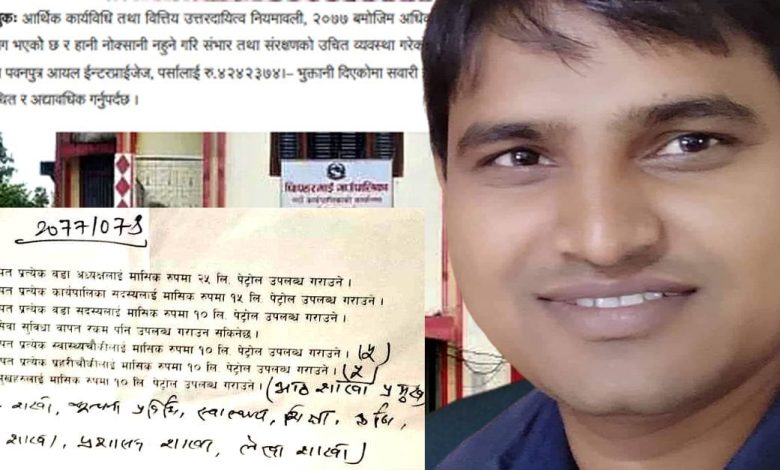 आर्थिक कार्यविधि तथा वित्तिय उत्तरदायित्व नियमावली, २०७७ बमोजिम
भएको छ र हानी नोक्सानी नहुने गरि संभार तथा संरक्षणको उचित व्यवस्था
पवनपुत्र आयल ईन्टरप्राईजेज, पर्सालाई रु.४२४२३७४।– भुक्तानी दिएकोमा सवारी
र अद्यावधिक गर्नुपर्दछ ।
गाउँपालिका
2077/07
प्रत्येक वडा अध्यक्षलाई मासिक रुपमा २५ लि. पेट्रोल उपलब्ध गराउने ।
प्रत्येक कार्यपालिका सदस्यलाई मासिक रुपमा १५ लि. पेट्रोल उपलब्ध गराउने ।
प्रत्येक वडा सदस्यलाई मासिक रुपमा १० लि. पेट्रोल उपलब्ध गराउने ।
सुविधा वापत रकम पनि उपलब्ध गराउन सकिनेछ ।
प्रत्येक स्वास्थ्यचौकीलाई मासिक रुपमा १० लि. पेट्रोल उपलब्ध गराउने ।
प्रत्येक प्रहरीचौकीलाई मासिक रुपमा १० लि. पेट्रोल उपलब्ध गराउने ।
मासिक रुपमा १० लि. पेट्रोल उपलब्ध गराउने । शाखा प्रमुख
शाखा, स्वास्थ्य,
शाखा, प्रशासन शाखा, लेखा शाखा)